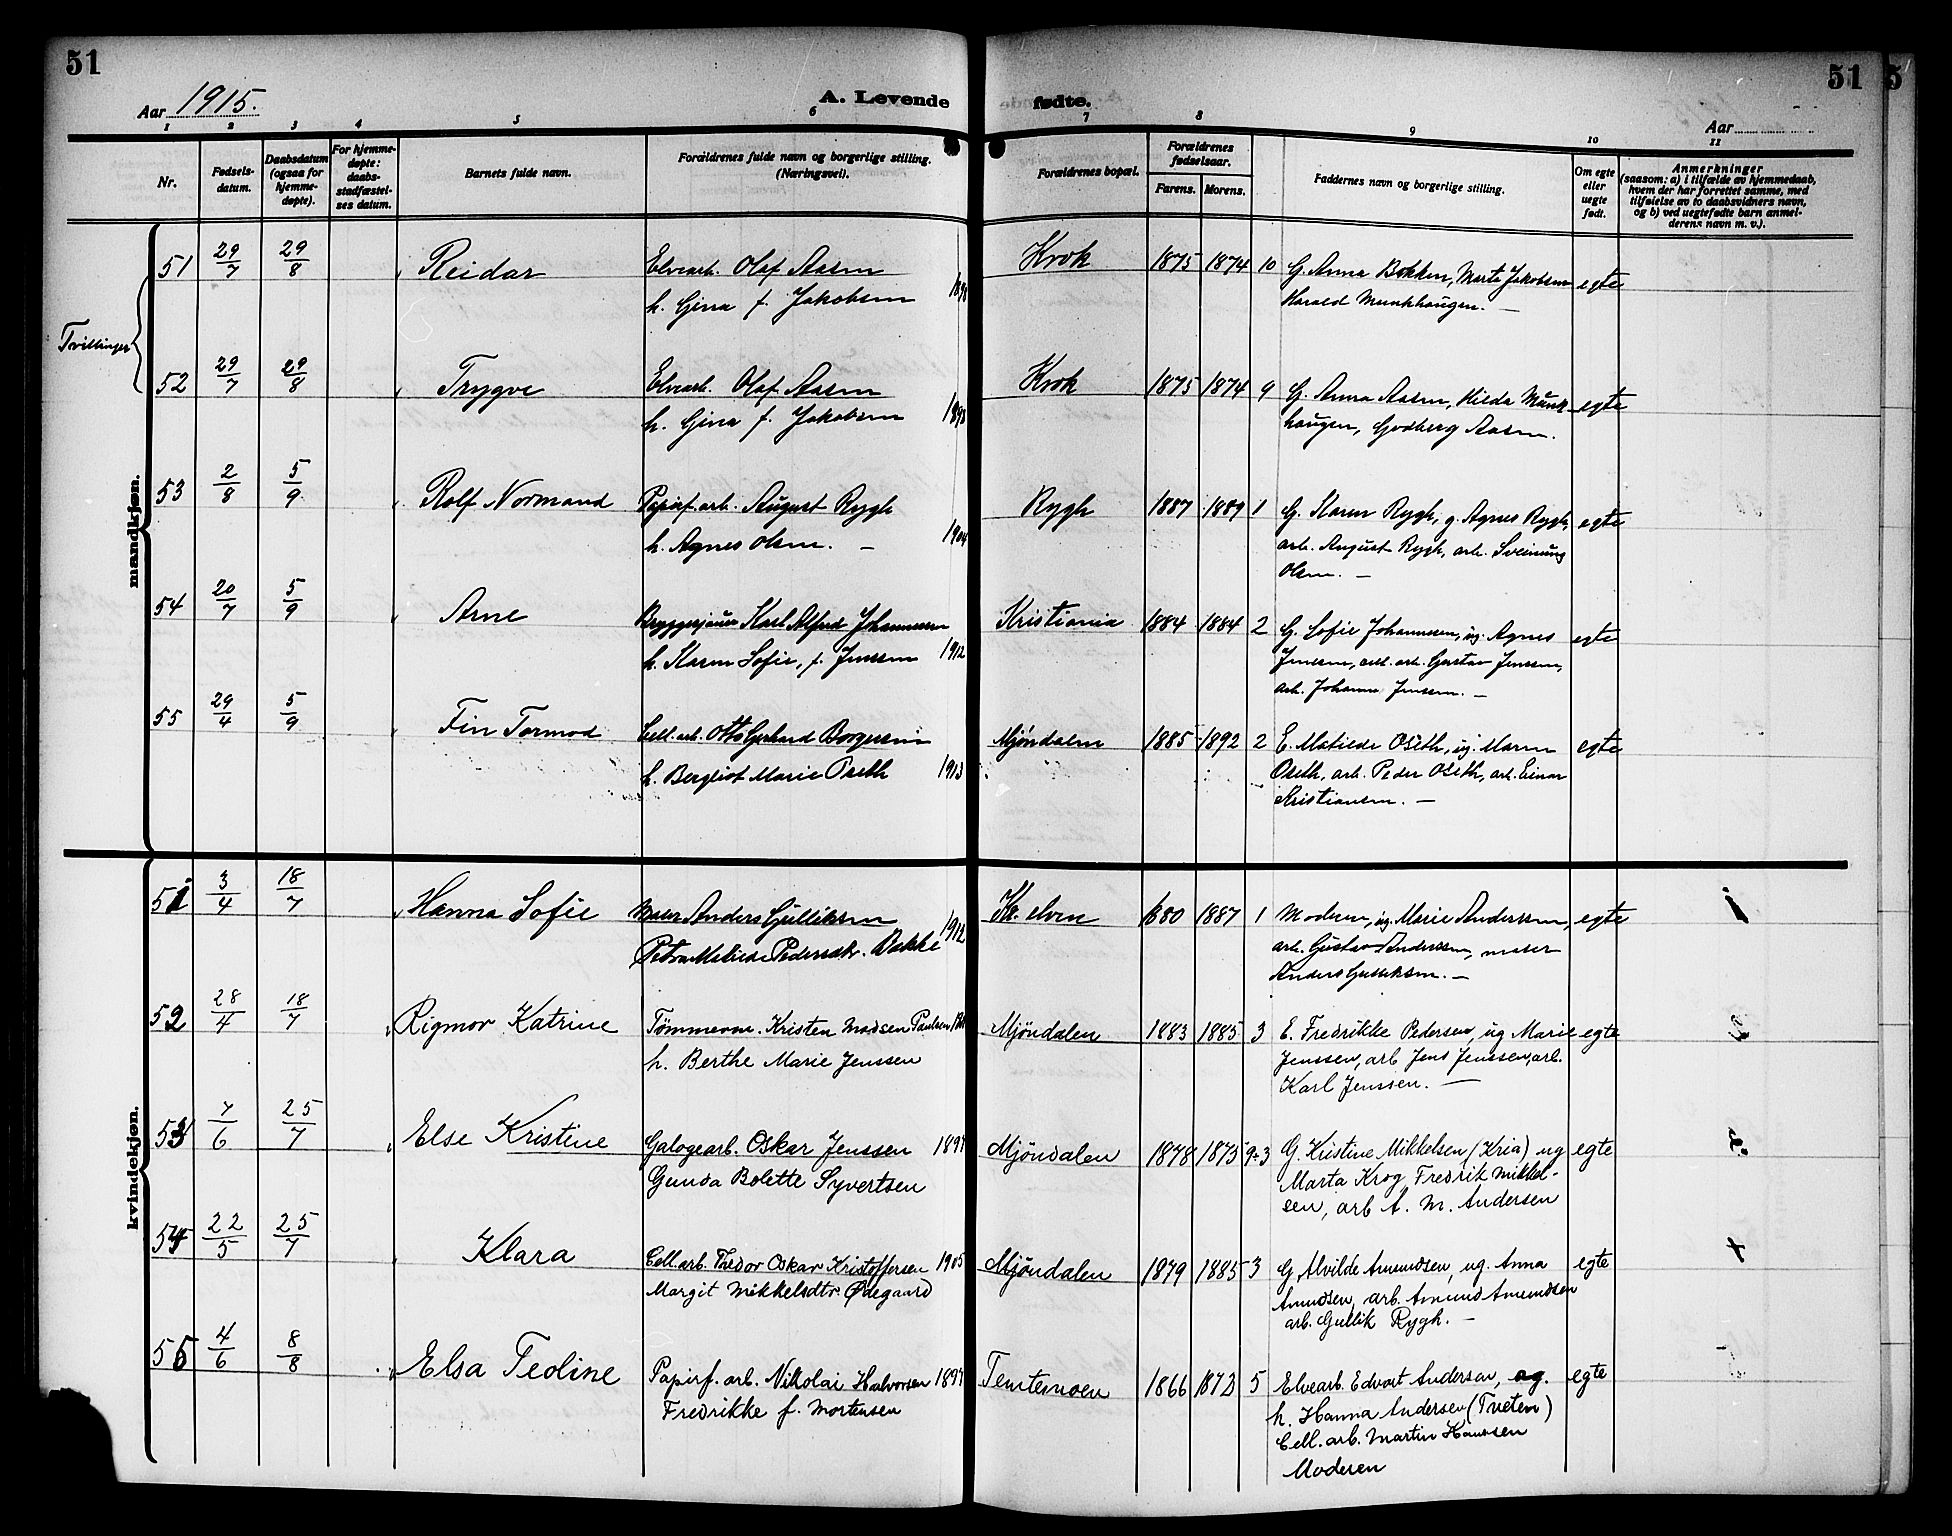 51
Aar 1915.
A. Levende
1 2 3 4 5 6
Nr.
Fødsels-
datum.
Daabsdatum
(ogsaa for
hjemme-
døpte).
For hjemme-
døpte:
daabs-
stadfæstel-
ses datum.
Barnets fulde navn.
Forældrenes fulde navn og borgerlige stilling.
(Næringsvei).
Tvillinger
mandkjøn.
51 29/7 29/8 Reidar Elvearb. Olaf Aasen
h. Gina f. Jakobsen 1898
52 29/7 29/8 Trygve Elvearb. Olaf Aasen
h. Gina f. Jakobsen 1898
53 2/8 5/9 Rolf Normand Papirf. arb. August Rygh
h. Agnes Olsen. — 1904
54 20/7 5/9 Arne Karl Alfred Johannessen
h. Karen Sofie, f. Jenssen 1912
55 29/4 5/9 Fin Tormod Cell. arb. Otto Gerhard Borgersen
h. Bergliot Marie Oseth 1913
kvindekjøn.
51 3/4 18/7 Hanna Sofie Maler Anders Gulliksen
Petra Matilde Pedersdtr. Bakke 1912
52 28/4 18/7 Rigmor Katrine Tømmerm. Kristen Madsen Paulsen
h. Berthe Marie Jenssen
53 7/6 25/7 Else Kristine Galogearb. Oskar Jenssen 1897
Gunda Bolette Syvertsen
54 22/5 25/7 Klara Cell. arb. Thedor Oskar Kristoffersen 1905
Margit Mikkelsdtr Ødegaard
55 4/6 8/8 Elsa Teoline Papirf. arb. Nikolai Halvorsen 1897
Fredrikke f. Mortensen
51 5
fødte.
Aar
7 8 9 10 11
Forældrenes bopæl.
Forældrenes
fødselsaar.
Farens. Morens.
Faddernes navn og borgerlige stilling.
Om egte
eller
uegte
født.
Anmerkninger
(saasom: a) i tilfælde av hjemmedaab,
hvem der har forrettet samme, med
tilføielse av to daabsvidners navn,
og b) ved uegtefødte barn anmel-
derens navn m. v.).
Krok 1875 1874 10 G. Anna Bakken, Marta Jakobsen egte
Harald Munkhaugen. —
Krok 1875 1874 9 G. Anna Aasen, Hilda Munk- egte
haugen, Godberg Aasen.
Rygh 1887 1889 1 G. Karen Rygh, g. Agnes Rygh, egte
arb. August Rygh, arb. Sveinung
Olsen. —
Kristiania 1884 1884 2 G. Sofie Johannesen, ug. Agnes egte
Jenssen, cell. arb. Gustav Jenssen,
arb. Johannes Jenssen. —
Mjøndalen 1885 1892 2 E. Matilde Oseth, ug. Maren egte
Oseth, arb. Peder Oseth, arb. Einar
Kristiansen. —
Kr. elven 1880 1887 1 Moderen, ug. Marie Anderssen, egte
arb. Gustav Anderssen, maler
Anders Gulliksen. —
Mjøndalen 1883 1885 3 E. Fredrikke Pedersen, ug Marie egte
Jenssen, arb Jens Jenssen, arb.
Karl Jenssen. —
Mjøndalen 1878 1875 9-3 G. Kristine Mikkelsen (Kria) ug egte
Marta Krog Fredrik Mikkel-
sen, arb A. M. Andersen
Mjøndalen 1879 1885 3 G. Alvilde Amundsen, ug. Anna egte
Amundsen, arb. Amund Amundsen
arb. Gullik Rygh. —
Temtemoen 1866 1873 5 Elvearb. Edvart Andersen, og. egte
h. Hanna Andersen (Tveten)
Cell. arb. Martin Hanssen
Moderen